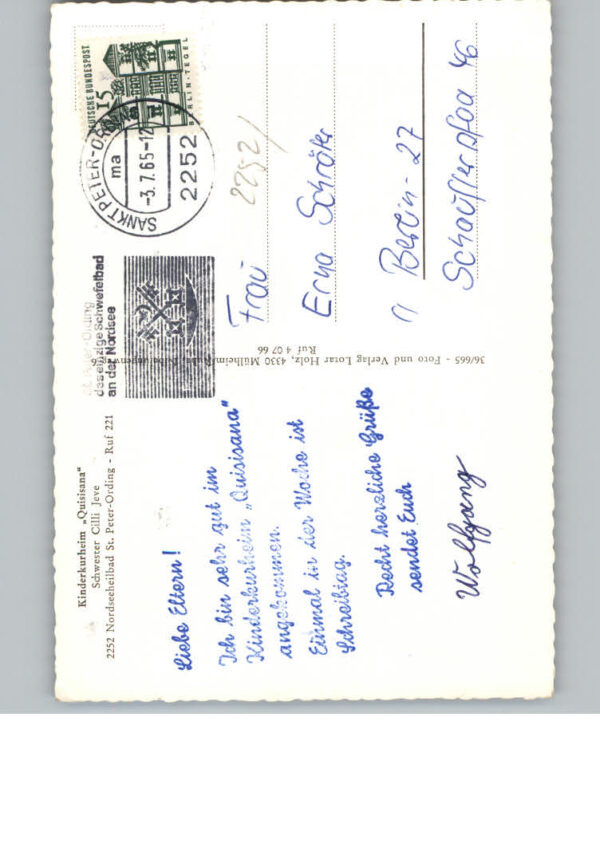 Kinderkurheim „Quisisana"
Schwester Cilli Jeve
2252 Nordseeheilbad St. Peter-Ording - Ruf 221
Liebe Eltern!
Ich bin sehr gut im
Kinderkurheim „Quisisana"
angekommen.
Einmal in der Woche ist
Schreibtag.
Recht herzliche Grüße
sendet Euch
Wolfgang
36/665 - Foto und Verlag Lotar Holz, 4330 Mülheim/Ruhr,
Ruf 4 07 66
-Ording
das einzige Schwefelbad
an der Nordsee
SANKT PETER-ORD
ma
-3.7.65-12
2252
DEUTSCHE BUNDESPOST
15
BERLIN-TEGEL
2252/
Frau
Erna Schröter
1 Berlin-27
46